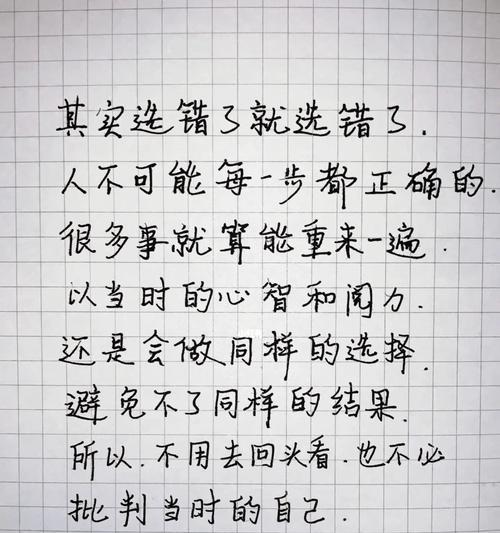 其实选错了就选错了.
人不可能每一步都正确的.
很多事就算能重来一遍.
以当时的心智和阅力.
还是会做同样的选择.
避免不了同样的结果.
所以.不用去回头看.也不必
批判当时的自己.